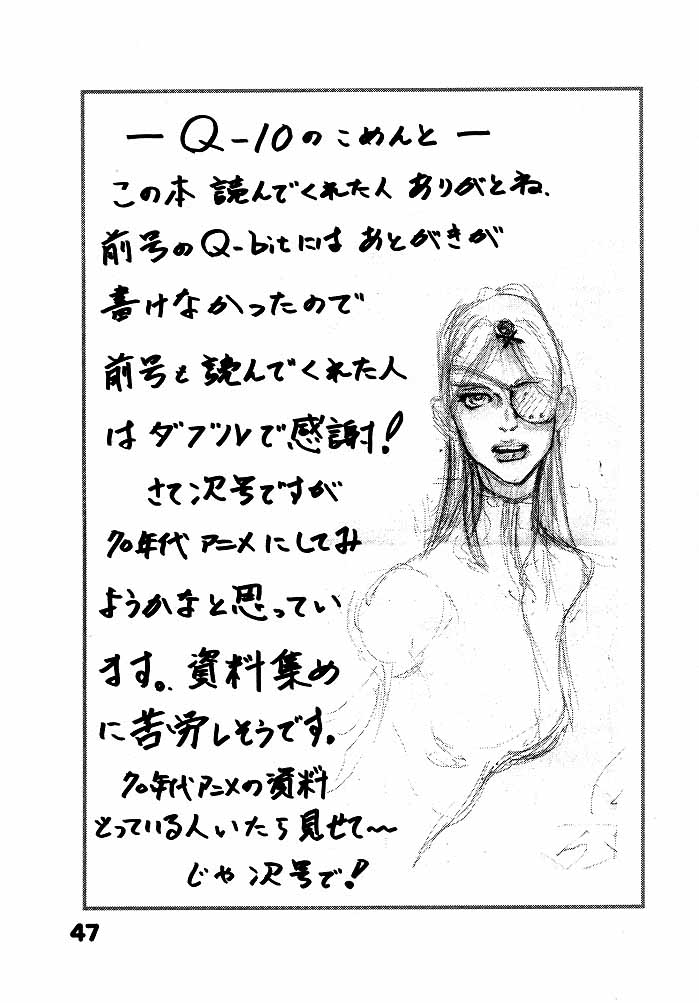 — Q-10のこめんと —
この本 読んでくれた人 ありがとね、
前号のQ-bitには あとがきが
書けなかったので
前号も 読んでくれた人
はダブルで感謝!
さて次号ですが
70年代 アニメ にしてみ
ようかなと思ってい
ます。資料集め
に苦労しそうです。
70年代アニメの資料
とっている人いたら 見せて〜
じゃ 次号で!
47